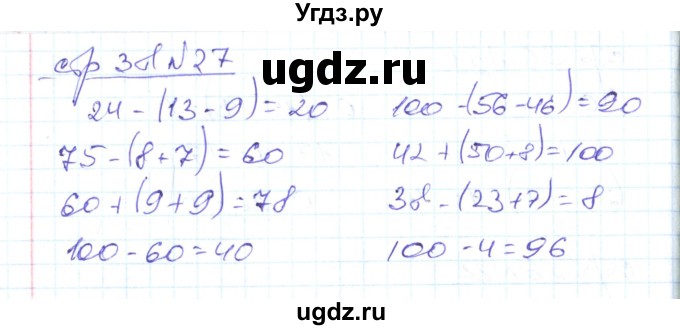 Угдз.ру
стр 38 №27
ugdz.ru
24 - (13 - 9) = 20 100 - (56 - 46) = 90
75 - (8 + 7) = 60 42 + (50 + 8) = 100
60 + (9 + 9) = 78 38 - (23 + 7) = 8
100 - 60 = 40 100 - 4 = 96
ugdz.ru